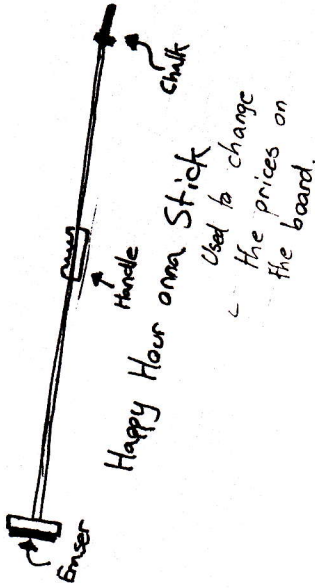 Chalk
Handle
Eraser
Happy Hour onna Stick
Used to change
the prices on
the board.